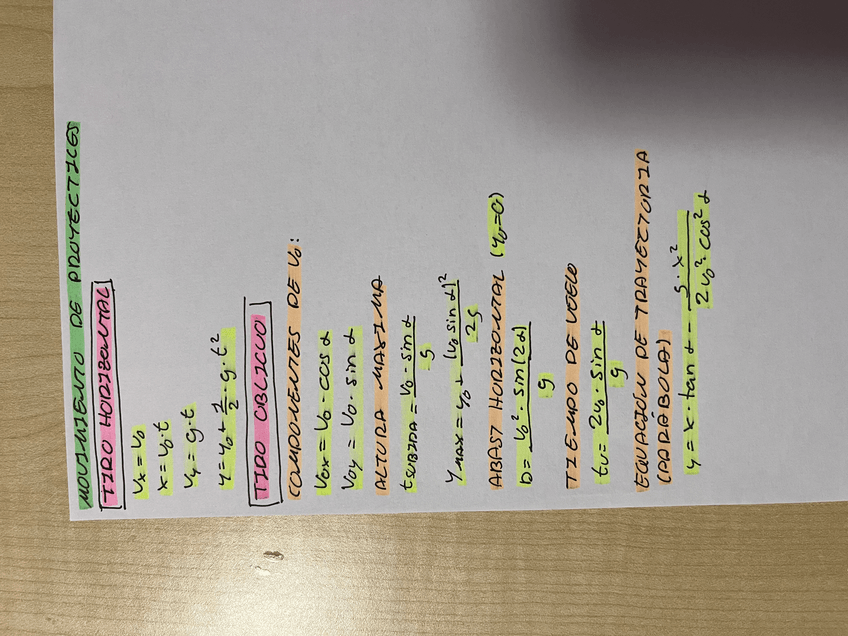 MOVIMIENTO DE PROYECTILES
TIRO HORIZONTAL
Vx = V0
x = V0·t
Vy = g·t
Y = Y0 + 1/2 · g · t²
TIRO OBLICUO
COMPONENTES DE V0:
V0x = V0 · cos α
V0y = V0 · sin α
ALTURA MAXIMA
tSUBIDA = V0 · sin α / g
YMAX = y0 + (V0 sin α)² / 2g
ABAST HORIZONTAL (y0=0)
D = V0² · sin(2α) / g
TIEMPO DE VUELO
tv = 2V0 · sin α / g
EQUACIÓN DE TRAYECTORIA
(PARÁBOLA)
y = x · tan α - g · x² / 2V0² · cos² α